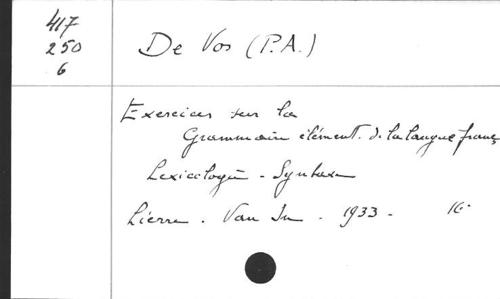 417
250
6
De Vos (P.A.)
Exercices sur la
Grammaire élément. d. la langue franç
Lexicologie - Syntaxe
Lierre. Van In. 1933 - 16°